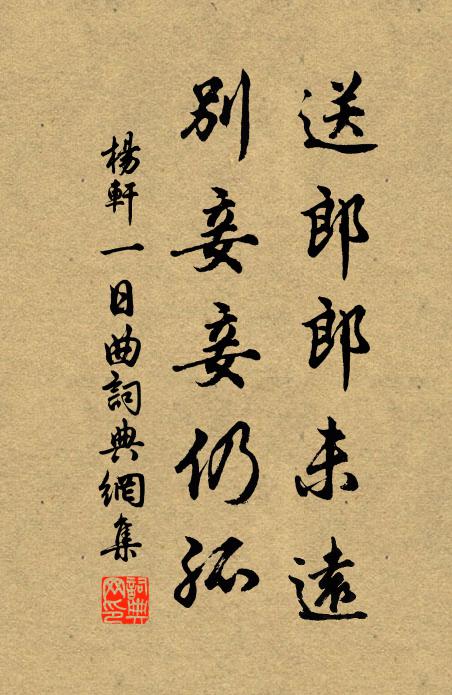 送郎郎未遠
別妾妾仍孤
楊軒一日曲詞典網集
詞典網印